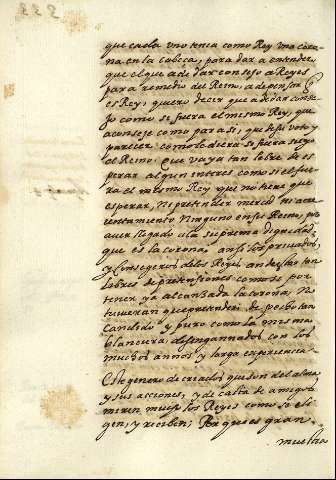 que cada vno tenia como Rey vna coro-
na en la cabeça, para dar a entender
que el que a de dar consejo a Reyes
para remedio del Reino, a de pensar q̃
es Rey, quiero decir que a de dar conse-
jo como se fuera el mismo Rey, que
aconseje como para si, que de su voto y
parecer, como le diera se fuera suyo
el Reino. Que vaya tan libre de es
perar algun interes como si el fue
ra el mismo Rey que no tiene que
esperar, ni pretender merced ni acre
centamiento ninguno en su Reino, por
auer llegado a la suprema dignidad
que es la corona. Ansi los priuados,
y Consegeros de los Reies an de ser tan
libres de pretensiones como se por
tener ya alcanzada la corona, no
tuuieran que pretender: de pecho tan
candido y puro como la misma
blancura desengannados con los
muchos annos y larga experiencia.
Este genero de criados que son del alma
y sus acciones, y de casta de amigos
miren mucho los Reyes como se eli-
gen, y reciben; Por que es gran
muestra